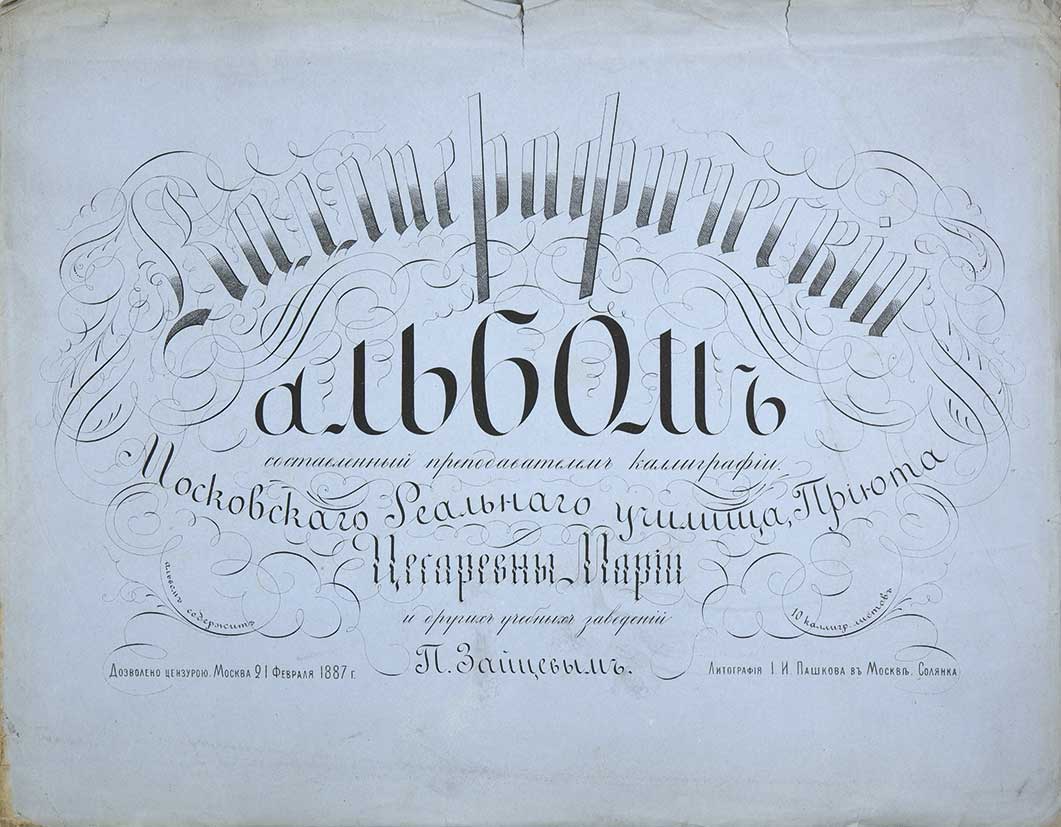 Каллиграфическій
альбомъ
составленный преподавателемъ каллиграфіи
Московскаго Реальнаго училища, Пріюта
Цесаревны Маріи
альбомъ содержитъ
10 каллигр. листовъ
и другихъ учебныхъ заведеній
П. Зайцевымъ.
Дозволено цензурою. Москва 21 Февраля 1887 г.
Литографія І. И. Пашкова въ Москвѣ. Солянка